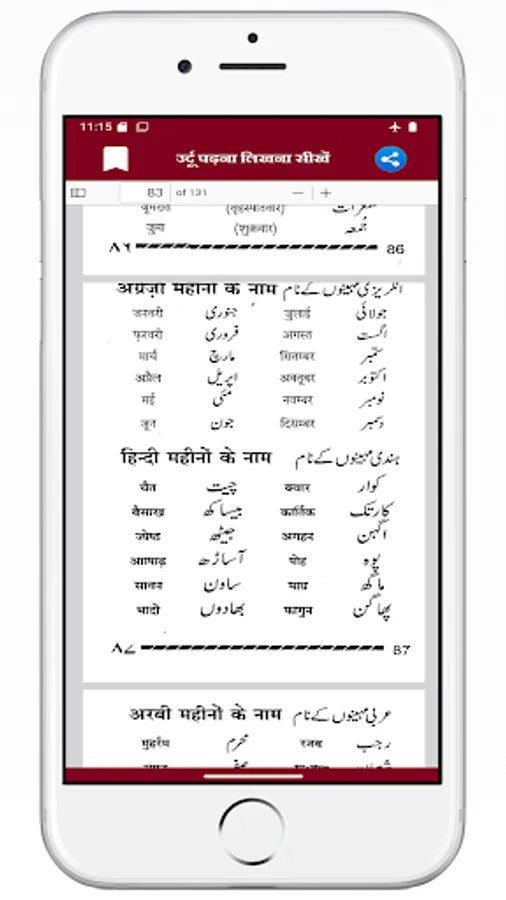 11:15
उर्दू पढ़ना लिखना सीखें
83 of 131 − +
(बृहस्पतिवार)
जुमा (शुक्रवार) جُمعہ
۸۶ 86
अंग्रेज़ी महीनों के नाम انگریزی مہینوں کے نام
जनवरी جنوری जुलाई جولائی
फ़रवरी فروری अगस्त اگست
मार्च مارچ सितम्बर ستمبر
अप्रैल اپریل अक्तूबर اکتوبر
मई مئی नवम्बर نومبر
जून جون दिसम्बर دسمبر
हिन्दी महीनों के नाम ہندی مہینوں کے نام
चैत چیت क्वार کوار
बैसाख بیساکھ कार्तिक کارتک
ज्येष्ठ جیٹھ अगहन اگہن
आषाढ़ آساڑھ पोह پوہ
सावन ساون माघ ماگھ
भादों بھادوں फागुन پھاگن
۸۷ 87
अरबी महीनों के नाम عربی مہینوں کے نام
मुहर्रम محرم रजब رجب